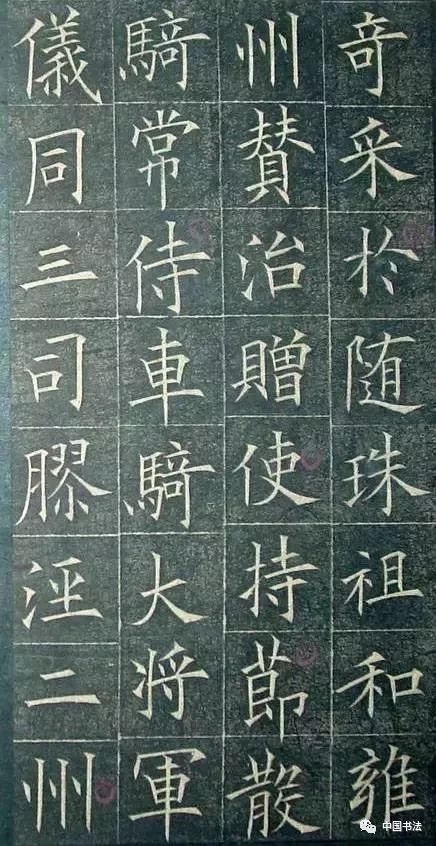 奇采於随珠祖和雍
州賛治贈使持莭散
騎常侍車騎大將軍
儀同三司膠涇二州
中国书法